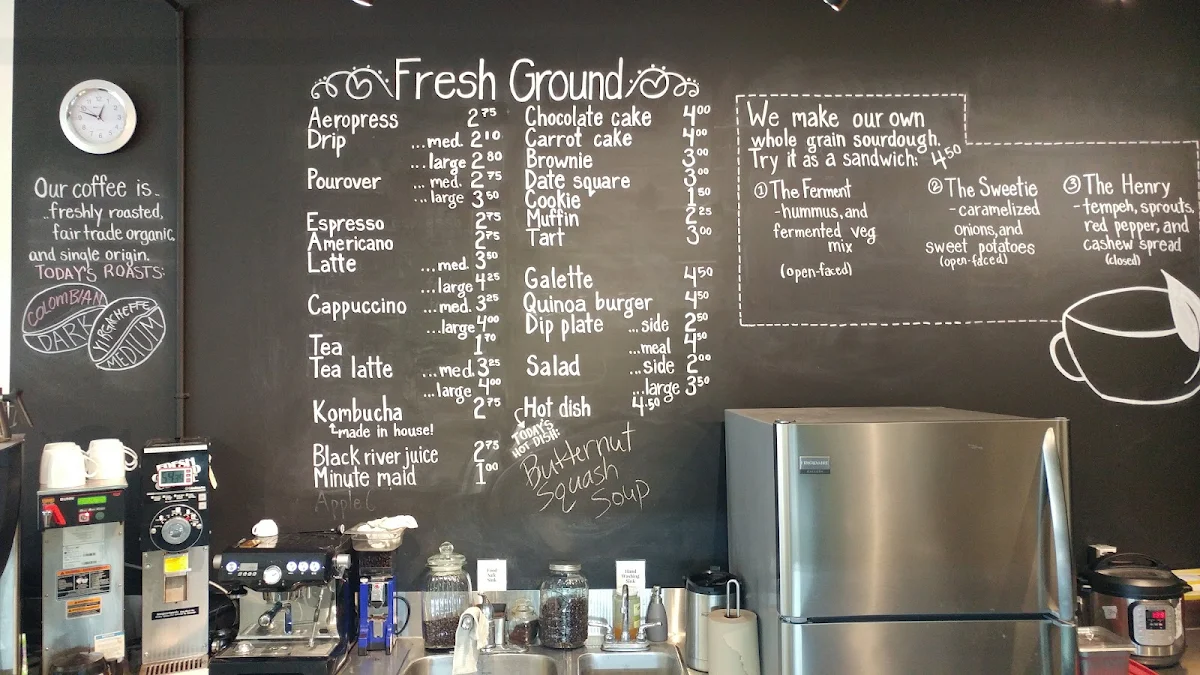 Fresh Ground
Aeropress 2.75
Drip ...med. 2.10
...large 2.80
Pourover ...med. 2.75
...large 3.50
Espresso 2.75
Americano 2.75
Latte ...med. 3.50
...large 4.25
Cappuccino ...med. 3.25
...large 4.00
Tea 1.70
Tea latte ...med. 3.25
...large 4.00
Kombucha 2.75
made in house!
Black river juice 2.75
Minute maid 1.00
Apple
Chocolate cake 4.00
Carrot cake 4.00
Brownie 3.00
Date square 3.00
Cookie 1.50
Muffin 2.25
Tart 3.00
Galette 4.50
Quinoa burger 4.50
Dip plate ...side 2.50
...meal 4.50
Salad ...side 2.00
...large 3.50
Hot dish 4.50
TODAY'S
HOT DISH:
Butternut
Squash
Soup
We make our own
whole grain sourdough.
Try it as a sandwich: 4.50
① The Ferment
-hummus, and
fermented veg
mix
(open-faced)
② The Sweetie
-caramelized
onions, and
sweet potatoes
(open-faced)
③ The Henry
-tempeh, sprouts,
red pepper, and
cashew spread
(closed)
Our coffee is..
..freshly roasted,
fair trade organic,
and single origin.
TODAY'S ROASTS:
COLOMBIAN
DARK
YIRGACHEFFE
MEDIUM
Hand
Washing
Sink